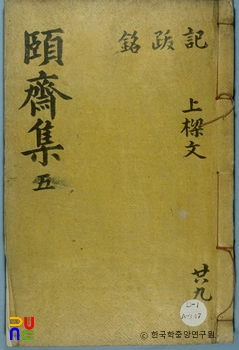 頤齋集 五
記
跋
銘
上樑文
廿八九
ⓒ 한국학중앙연구원